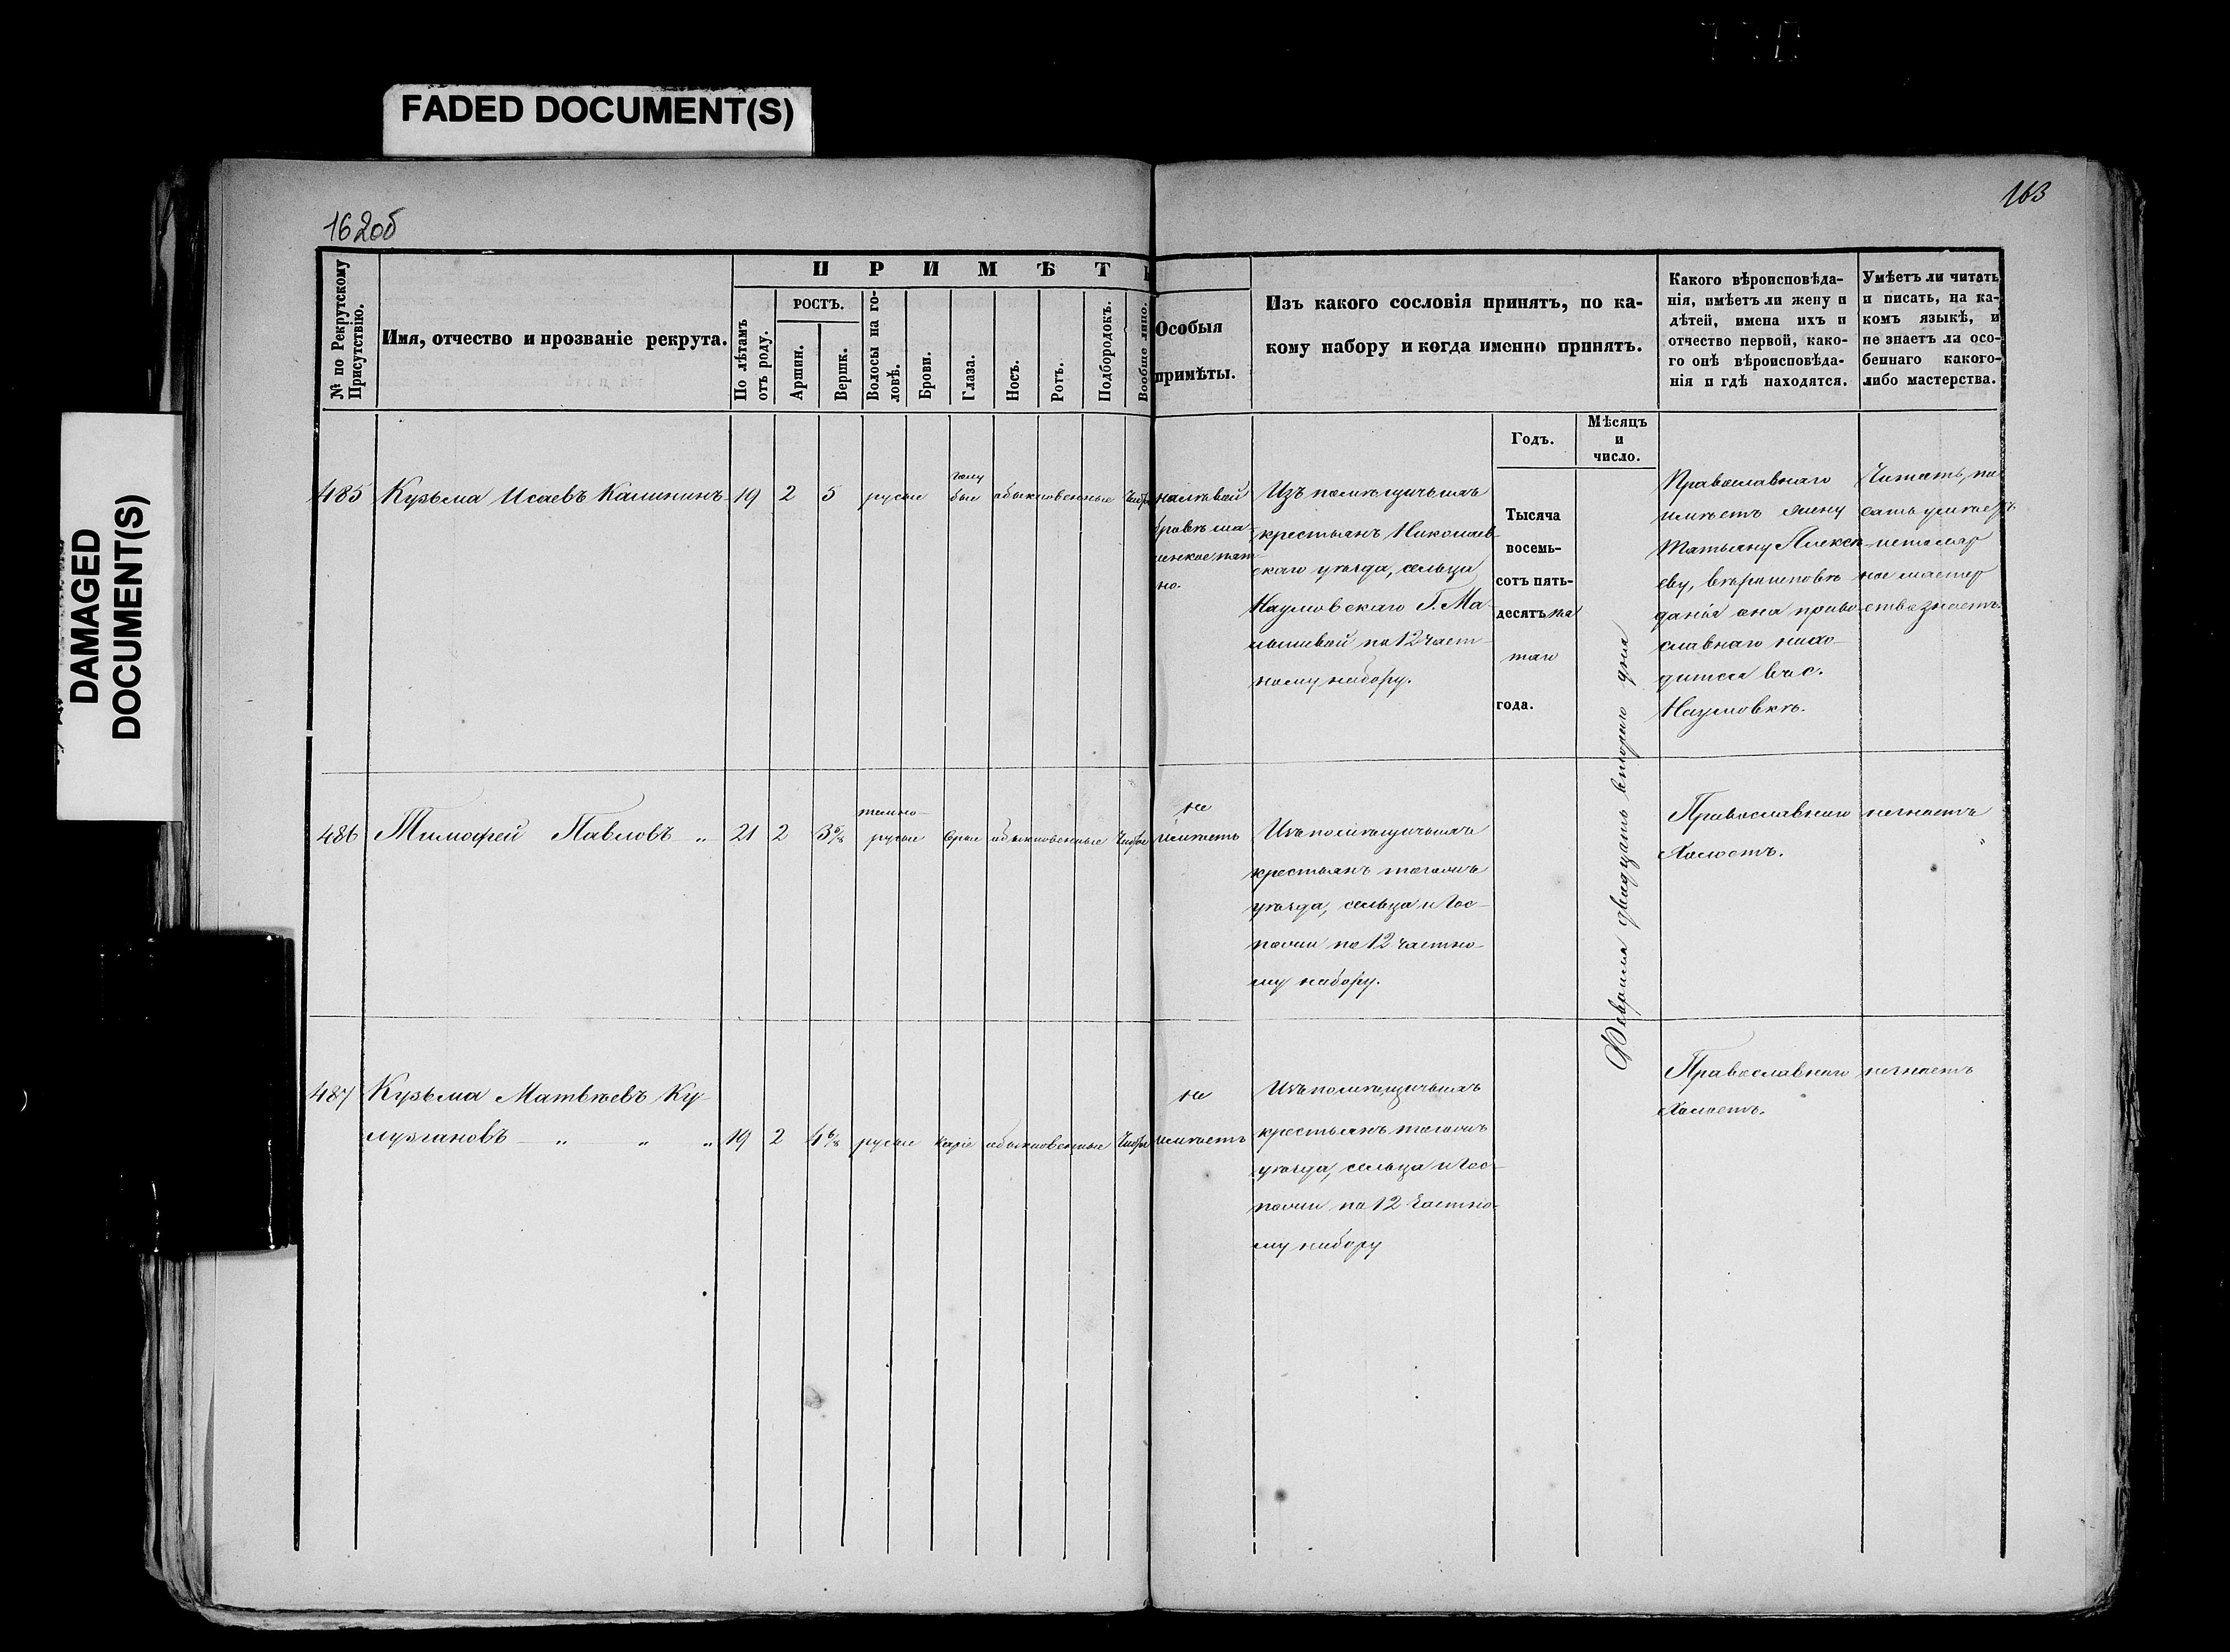 FADED DOCUMENT(S)
DAMAGED
DOCUMENT(S)
162об
163
№ по Рекрутскому
Присутствію.
Имя, отчество и прозваніе рекрута.
ПРИМѢТ
По лѣтамъ
отъ роду.
РОСТЪ.
Аршин.
Вершк.
Волосы на го-
ловѣ.
Брови.
Глаза.
Носъ.
Ротъ.
Подбородокъ.
Вообще лицо.
Особыя
примѣты.
Изъ какого сословія принятъ, по ка-
кому набору и когда именно принятъ.
Какого вѣроисповѣда-
нія, имѣетъ ли жену и
дѣтей, имена ихъ и
отчество первой, како-
го онѣ вѣроисповѣда-
нія и гдѣ находятся.
Умѣетъ ли читать
и писать, на ка-
комъ языкѣ, и
не знаетъ ли осо-
беннаго какого-
либо мастерства.
Годъ.
Мѣсяцъ
и
число.
485 Кузьма Исаевъ Калининъ 19 2 5 русые голу
бые обыкновенные чистое
на лѣвой
бровѣ ма-
ленькое пят
но.
Изъ помѣщичьихъ
крестьянъ Николаев-
скаго уѣзда, сельца
Наумовскаго Г.
по 12 част-
ному набору.
Тысяча
восемь-
сотъ пять-
десятъ пя
таго
года.
Февраля двадцать втораго дня
Православнаго
имѣетъ жену
Татьяну Алексѣ-
еву, вѣроисповѣ
данія она право-
славнаго нахо-
дится въ с.
Наумовкѣ.
Читать, пи
сать умѣетъ
мастер
ства знаетъ.
486 Тимофей Павловъ „ 21 2 3 5/8 темно-
русые сѣрые обыкновенные чистое
не
имѣетъ
Изъ помѣщичьихъ
крестьянъ тогожъ
уѣзда, сельца и Гос-
пожи по 12 частно-
му набору.
Православнаго
Холостъ.
незнаетъ
487 Кузьма Матвѣевъ Ку-
лугановъ „ „ „ 19 2 4 6/8 русые каріе обыкновенные чистое
не
имѣетъ
Изъ помѣщичьихъ
крестьянъ тогожъ
уѣзда, сельца и Гос-
пожи по 12 частно-
му набору
Православнаго
Холостъ.
незнаетъ